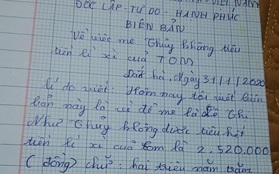 ĐỘC LẬP - TỰ DO - HẠNH PHÚC
BIÊN BẢN
Về việc mẹ Thủy không tiêu
tiền lì xì của TOM
hà, Ngày 31/1/2020
lí do viết: Hôm nay tôi viết biên
bản này là vì để mẹ là Lê Thị
Như Thủy không được tiêu hết
tiền lì xì của Tom là 2.520.000
(đồng) chữ: hai triệu năm trăm